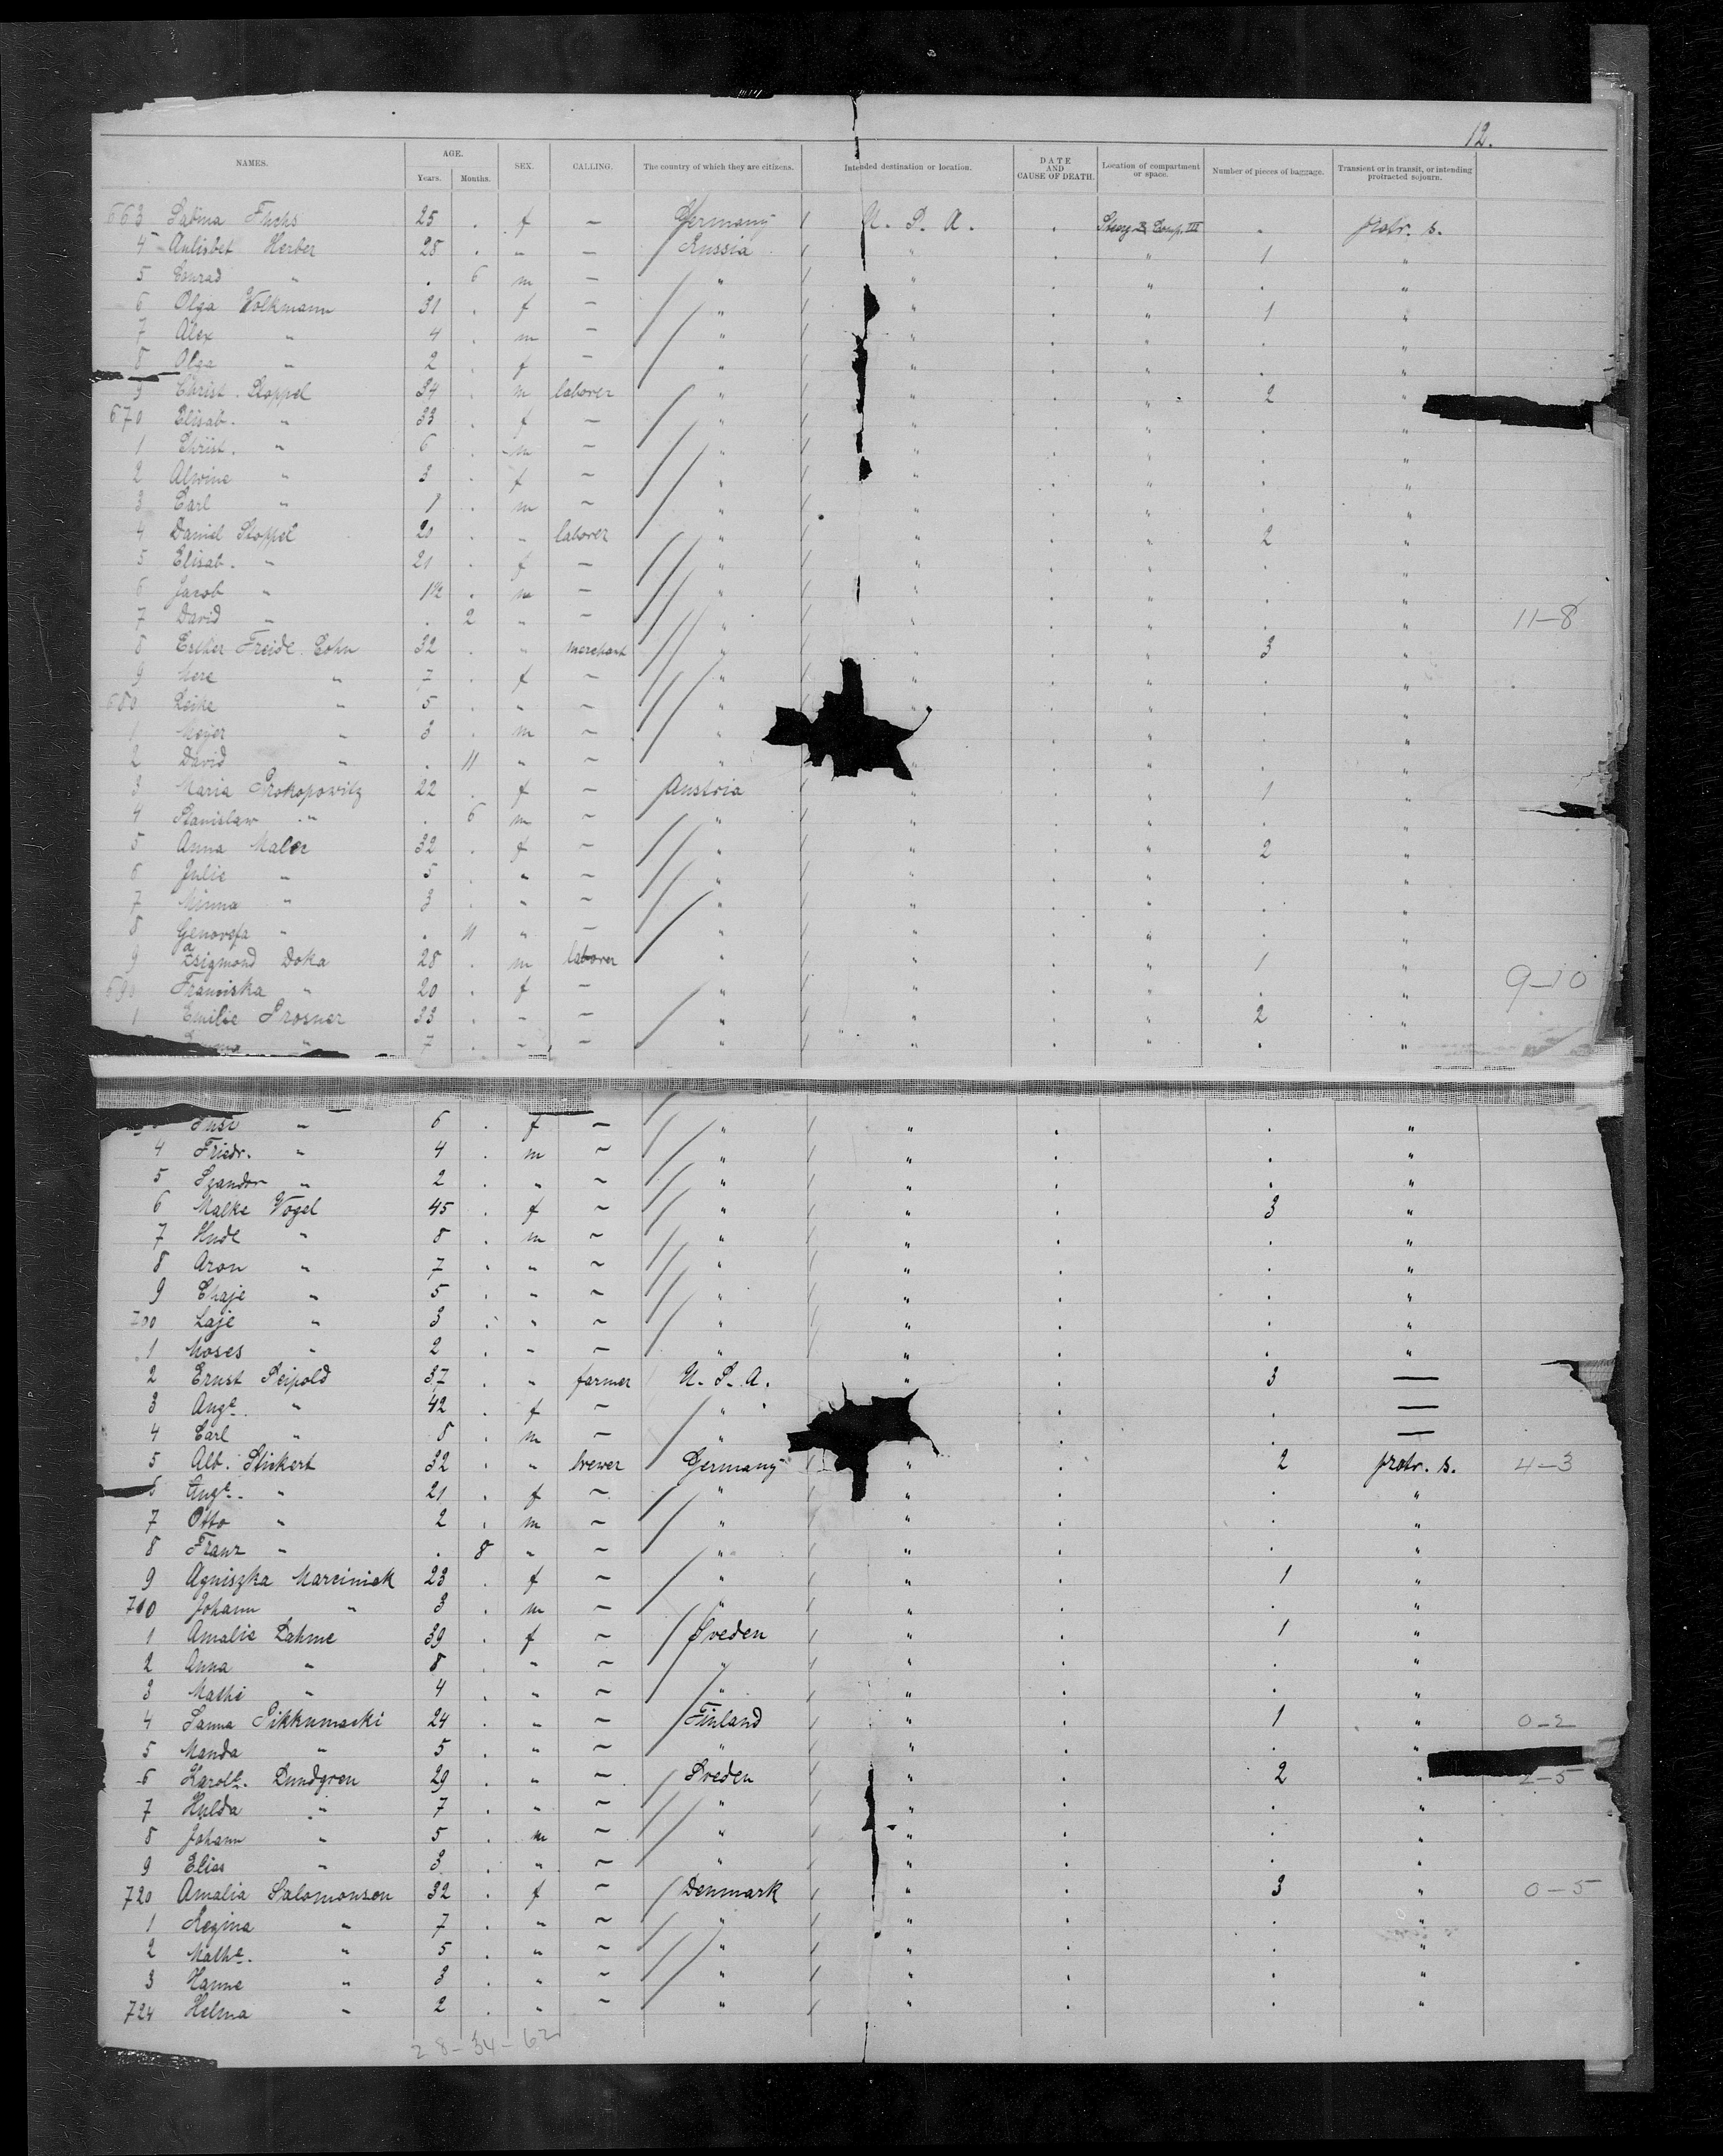 12.
NAMES. AGE. Years. Months. SEX. CALLING. The country of which they are citizens. Intended destination or location. DATE AND CAUSE OF DEATH. Location of compartment or space. Number of pieces of baggage. Transient or in transit, or intending protracted sojourn.
663 Sabina Fuchs 25 . f — Germany U. S. A. . Steerg. Comp. III . protr. s.
4 Anlisbet Herber 28 . " — Russia " . " 1 "
5 Conrad " . 6 m — " " . " . "
6 Olga Volkmann 31 . f — " " . " 1 "
7 Alex " 4 . m — " " . " . "
8 Olga " 2 . f — " " . " . "
9 Christ. Stoppel 34 . m laborer " " . " 2 "
670 Elisab. " 33 . f — " " . " . "
1 Christ. " 6 . m — " " . " . "
2 Alwine " 3 . f — " " . " . "
3 Carl " 1 . m — " " . " . "
4 Daniel Stoppel 20 . " laborer " " . " 2 "
5 Elisab. " 21 . f — " " . " . "
6 Jacob " 1½ . m — " " . " . "
7 David " . 2 " — " " . " . " 11-8
8 Esther Freide Cohn 32 . " merchant " " . " 3 "
9 Mere " 7 . f — " " . " . "
680 Leike " 5 . " — " " . " . "
1 Meyer " 3 . m — " . " . "
2 David " . 11 " — " " . " . "
3 Maria Prokopowitz 22 . f — Austria " . " 1 "
4 Stanislaw " . 6 m — " " . " . "
5 Anna Maler 32 . f — " " . " 2 "
6 Julie " 5 . " — " " . " . "
7 Minna " 3 . " — " " . " . "
8 Genovefa " . 11 " — " " . " . "
9 Zsigmond Doka 28 . m laborer " " . " 1 "
690 Franciska " 20 . f — " " . " . " 9-10
1 Emilie Prosner 33 . " — " " . " 2 "
" 7 . " — " " . " . "
" 6 . f — " " . . "
4 Friedr. " 4 . m — " " . . "
5 Szandor " 2 . " — " " . . "
6 Malke Vogel 45 . f — " " . 3 "
7 Hude " 8 . m — " " . . "
8 Aron " 7 . " — " " . . "
9 Chaje " 5 . " — " " . . "
700 Laje " 3 . " — " " . . "
1 Moses " 2 . " — " " . . "
2 Ernst Seipold 37 . " farmer U. S. A. " . 3 —
3 Auge. " 42 . f — " " . . —
4 Carl " 8 . m — " " . . —
5 Alb. Stickert 32 . " brewer Germany " . 2 protr. s. 4-3
6 Auge. " 21 . f — " " . . "
7 Otto " 2 . m — " " . . "
8 Franz " . 8 " — " " . . "
9 Agniszka Marciniak 23 . f — " " . 1 "
710 Johann " 3 . m — " " . . "
1 Amalie Dahme 39 . f — Sveden " . 1 "
2 Anna " 8 . " — " " . . "
3 Mathi " 4 . " — " " . . "
4 Sanna Pikkumaeki 24 . " — Finland " . 1 " 0-2
5 Manda " 5 . " — " " . . "
6 Karole. Lundgren 29 . " — Sveden " . 2 " 2-5
7 Hulda " 7 . " — " " . . "
8 Johann " 5 . m — " " . . "
9 Elias " 3 . " — " " . . "
720 Amalia Salomonsen 32 . f — Denmark " . 3 " 0-5
1 Regina " 7 . " — " " . . "
2 Mathe. " 5 . " — " " . . "
3 Hanne " 3 . " — " " . . "
724 Helma " 2 . " — " " . . "
28-34-62